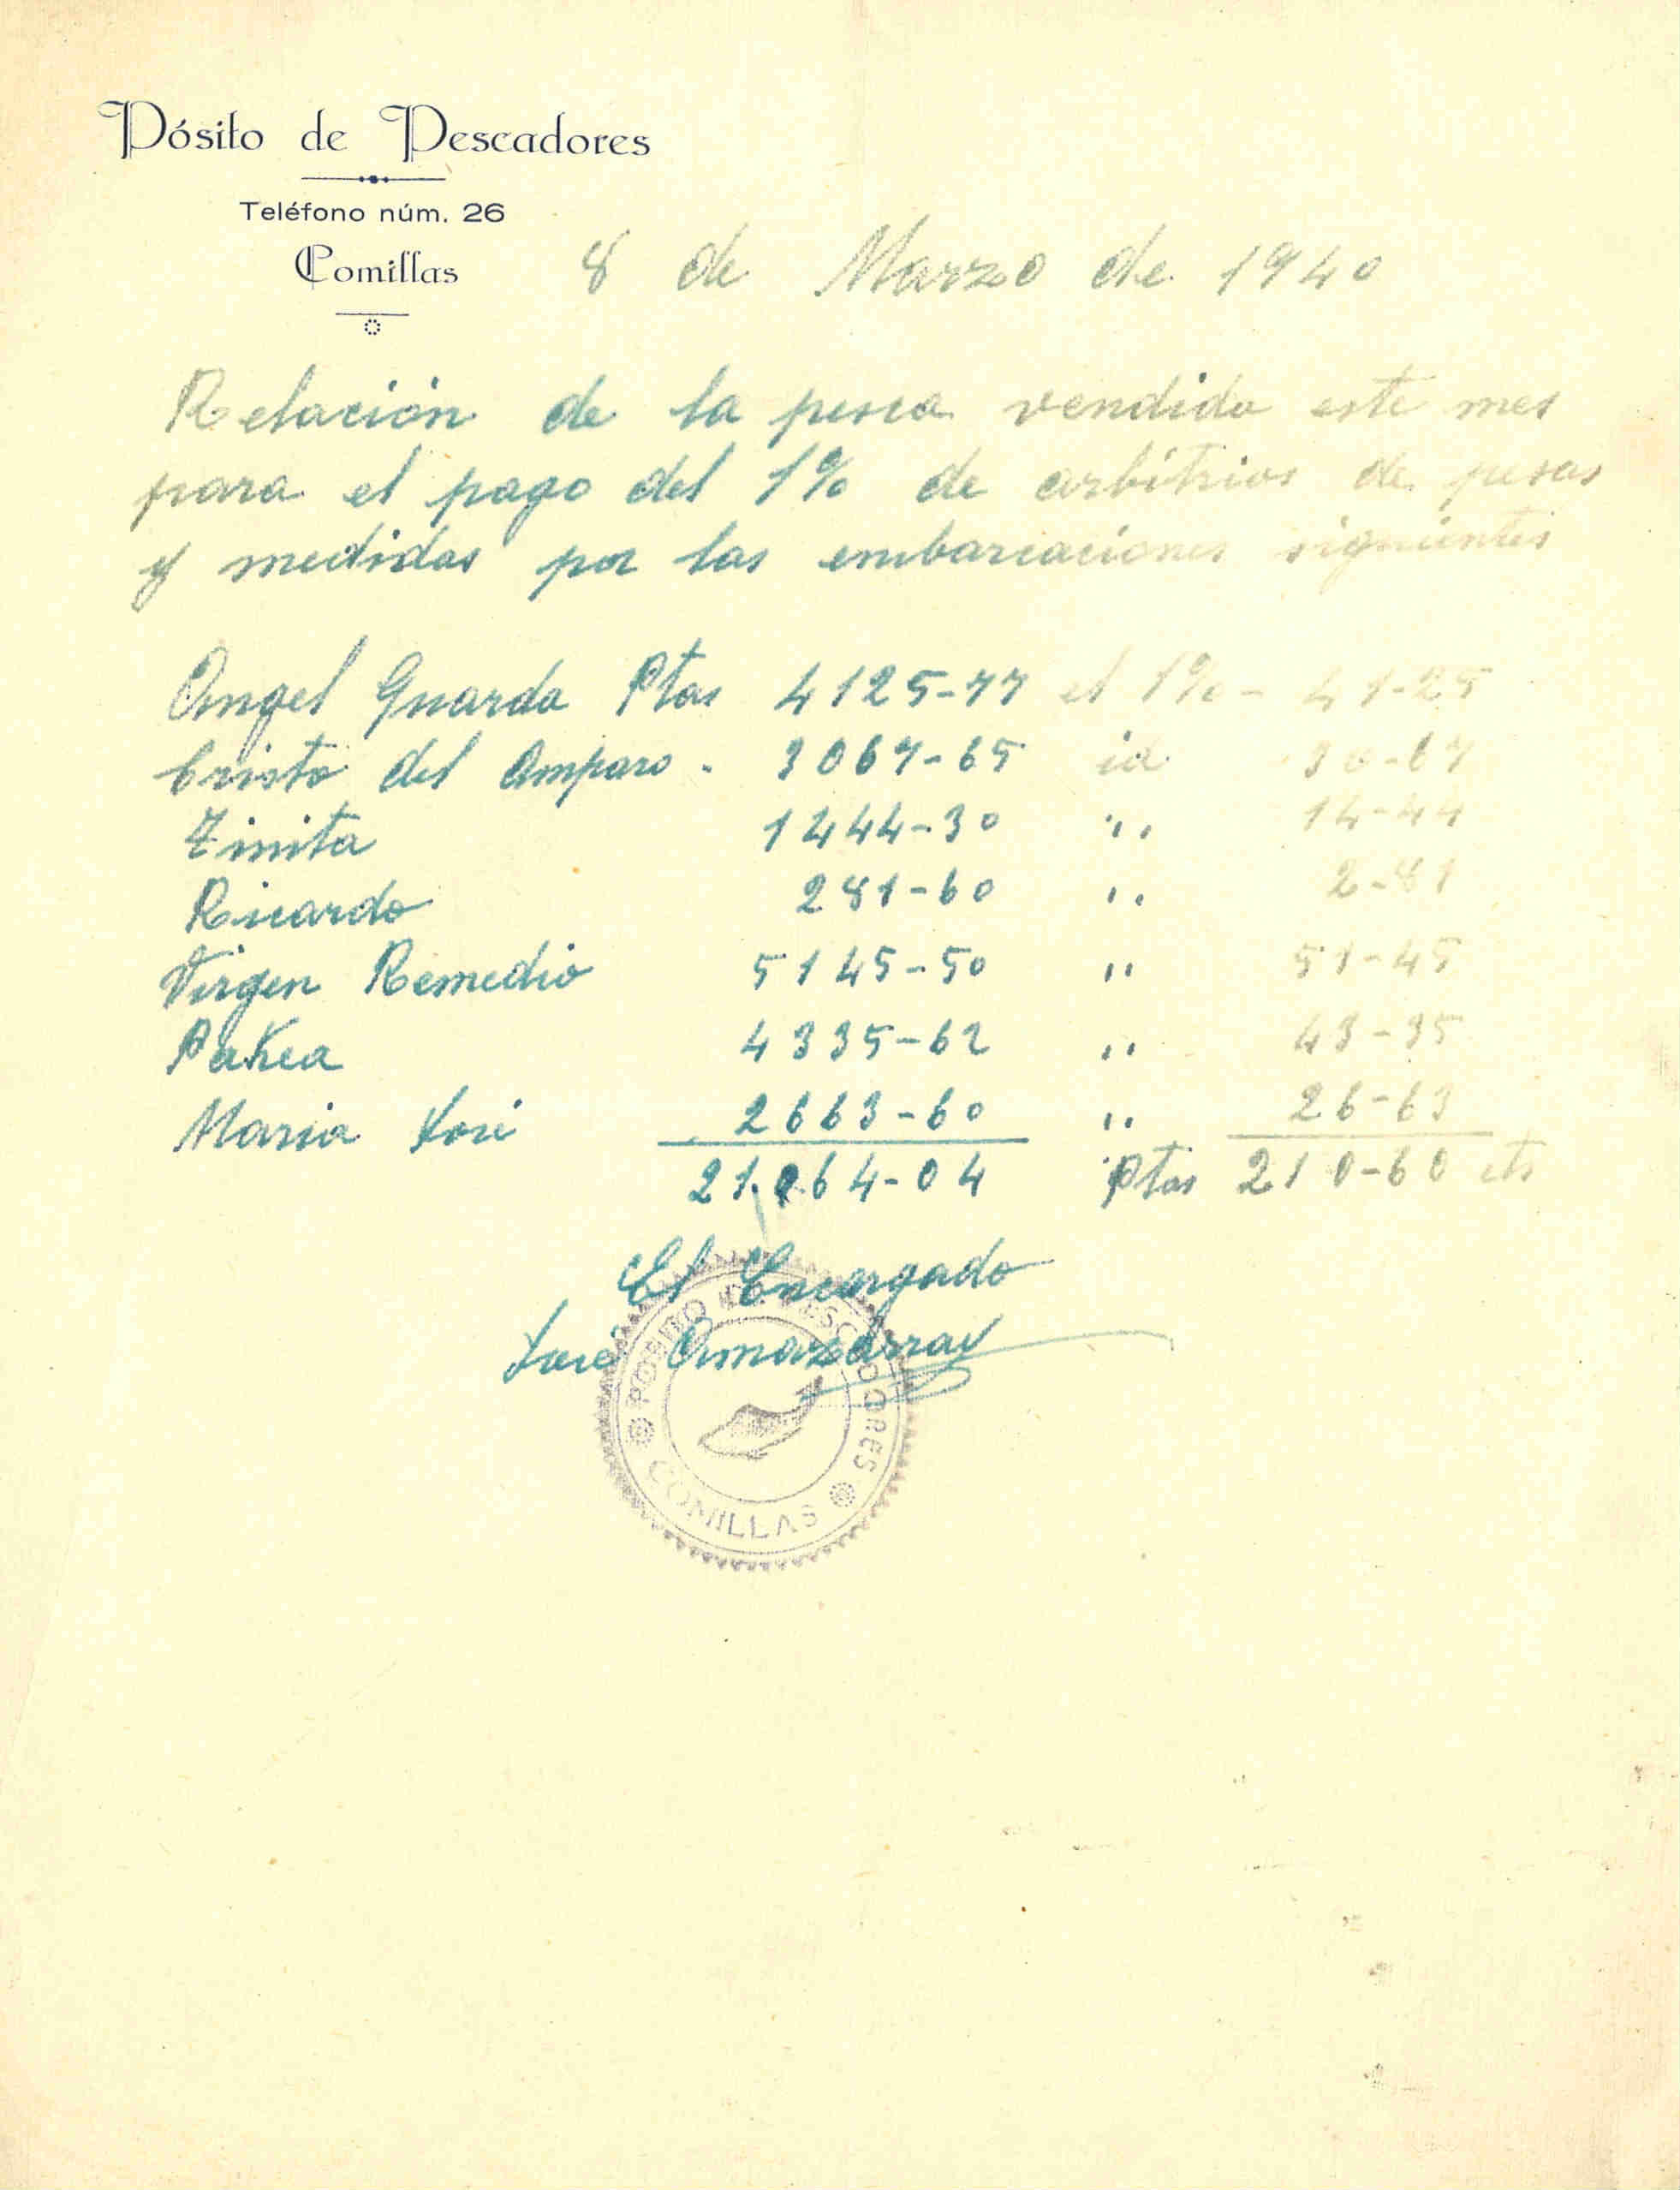 Pósito de Pescadores
Teléfono núm. 26
Comillas
8 de Marzo de 1940
Relación de la pesca vendida este mes
para el pago del 1% de arbitrios de pesas
y medidas por las embarcaciones siguientes
Angel Guarda Ptas 4125-77 el 1% - 41-25
Cristo del Amparo - 3067-65 id 30-67
Tinita 1444-30 '' 14-44
Ricardo 281-60 '' 2-81
Virgen Remedio 5145-50 '' 51-45
Pakea 4335-62 '' 43-35
Maria José 2663-60 '' 26-63
21.064-04 Ptas 210-60 cts
El Encargado
José Amazarray
POSITO DE PESCADORES
COMILLAS